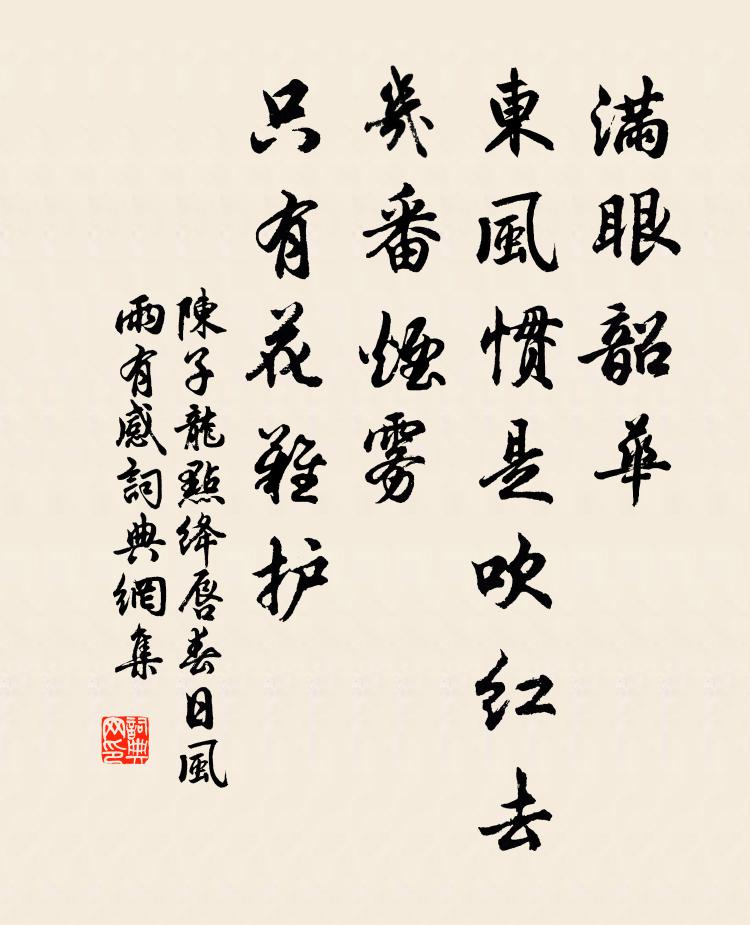 滿眼韶華
東風慣是吹红去
幾番煙雾
只有花難护
陳子龍點絳唇春日風
雨有感詞典網集
詞典网印